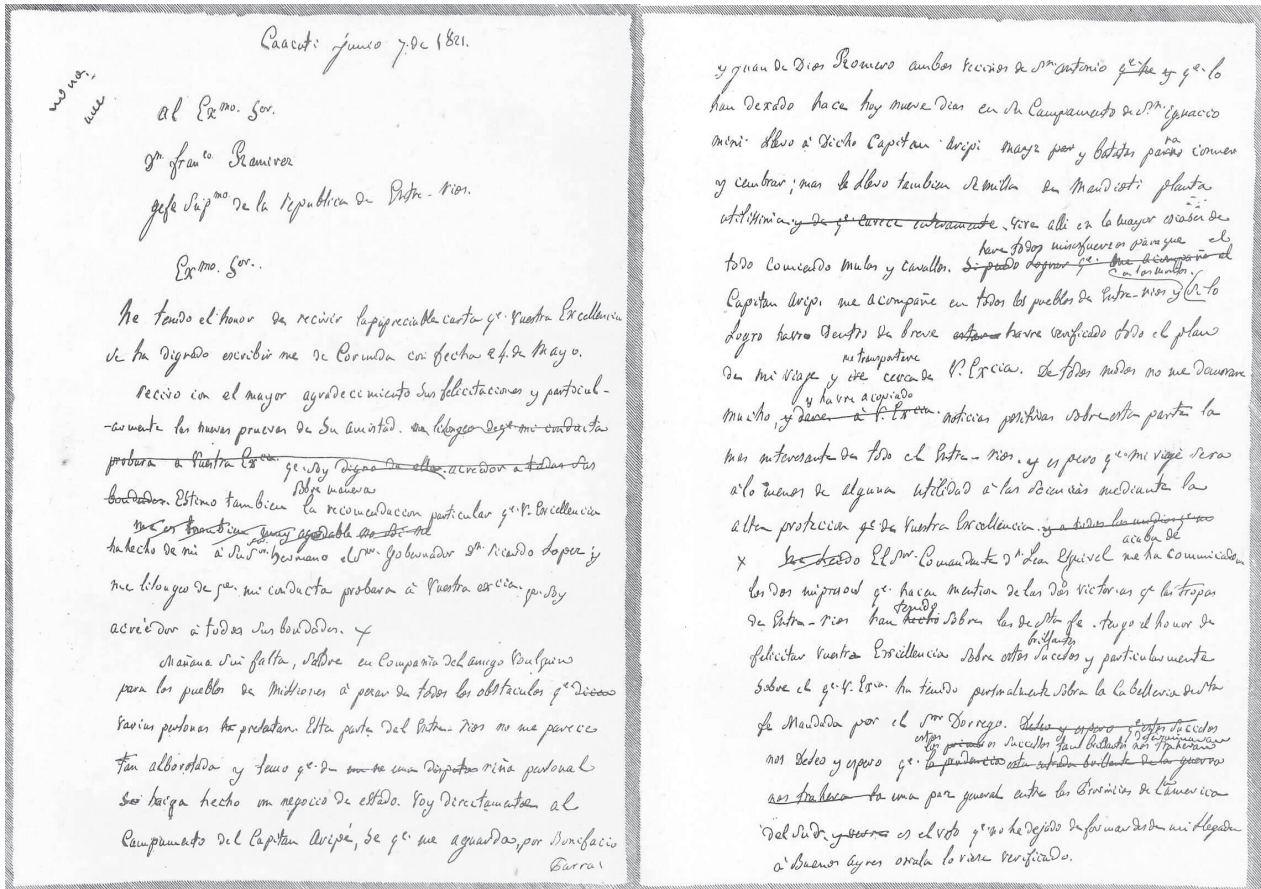 Caacati junio 7. de 1821.
al Exmo. Sor.
Dn. franco. Ramirez
gefe Supmo de la republica de Entre-rios.
Exmo. Sor..
he tenido el honor de recivir la apreciable carta qe. Vuestra Excellencia
se ha dignado escribir me de Coronda con fecha 24. de Mayo.
recivo con el mayor agradecimiento Sus felicitaciones y particul-
-armente las nuevas pruevas de Su amistad. me lisongeo de qe mi conducta
probara a Vuestra Excia. qe. soy digno de ellas. acredor a todas sus
bondades. Estimo tambien Sobre manera la recomendacion particular qe. V. Excellencia
me es tambien muy agradable
ha hecho de mi à Su Sor. hermano el Sor. Gobernador Dn. ricardo Lopez y
me lisongeo de qe. mi conducta probara à Vuestra excia. qe. soy
acréedor à todos Sus bondades. x
Mañana Sin falta, Saldre en Compania del amigo Voulquin
para los pueblos de Missiones à pesar de todos los obstaculos qe
varias personas pretextan. Esta parte del Entre-rios no me parece
tan alborotada y temo qe. de una disputa riña personal
Se haiga hecho un negocio de estado. Voy directamente al
Campamento del Capitan Aripé, Se qe. me aguarda, por Bonifacio
y Juan de Dios Romero ambos vecinos de Sn. antonio qe. he y qe. lo
han dexado hace hoy nueve dias en Su Campamento de Sn. ignacio
mini. Llevo à Dicho Capitan Aripi mays y batatas para comer
y cembrar; mas le Llevo tambien Semilla de Mandioti planta
utilissima y de qe. carece enteramente. vive alli en la mayor escasez de
todo comiendo mulas y cavallos. hare todos mis esfuerzos para que el
Si puedo lograr qe. me acompañe el
Capitan Aripi me acompañe en todos los pueblos de Entre-rios y Si lo
logro havre Dentro de breve havre verificado todo el plan
de mi viage y me transportare cerca de V. Excia. De todos modos no me demorare
mucho y havre acopiado noticias positivas sobre esta parte la
mas interesante de todo el Entre-rios. y espero qe. mi viage sera
à lo menos de alguna utilidad à las sciencias mediante la
alta proteccion qe. de Vuestra Excellencia.
x El Sor. Comandante Dn. Leon Esquivel acaba de me ha comunicado
los dos impresos qe. hacen mention de las dos victorias qe las tropas
de Entre-rios han tenido Sobre las de Sta fe. tengo el honor de
felicitar Vuestra Excellencia Sobre estos brillantes Sucesos y particularmente
Sobre el qe. V. Excia. ha tenido personalmente Sobre la Caballeria de Sta
fe Mandada por el Sor Dorrego. Deseo y espero qe estos Sucesos
nos Deseo y espero qe. estos Sucessos tan brillantes nos traheran
nos traheran la una paz general entre las Provincias de la America
del Sud. y es el voto qe no he dejado de formar desde mi llegada
à Buenos ayres oxala lo viese verificado.